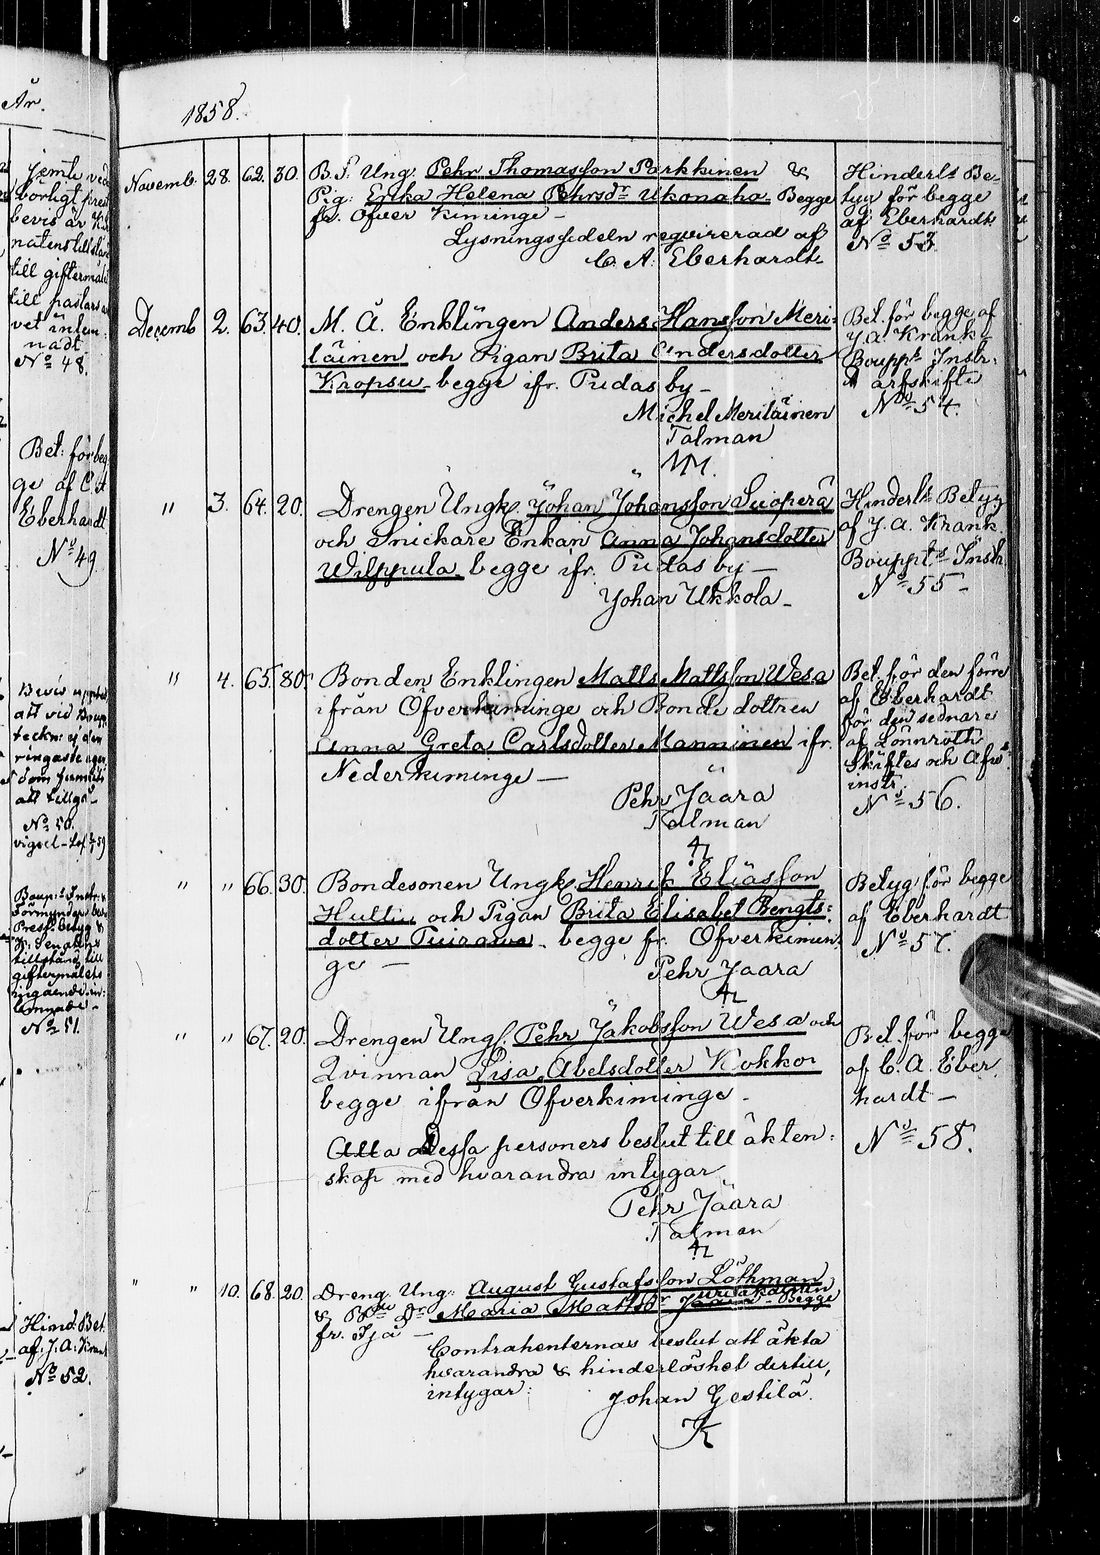 År.
Jemte ved
börligt prest
bevis är
natens tillstånd
till giftermålet
till pastors
vet inlem
nadt
No 48.
Bet: för beg
ge af C. A
Eberhardt
No 49
att vid Boupp
teckn: ej den
ringaste egen
dom funnits
att tillgå
No 50.
Betyg &
tillstånd till
giftermålets
ingående in
lemnade
No 51.
Hind. Bet.
af J. A. Krank
No 52.
1858.
Novemb. 28. 62. 30. B. S. Ung. Pehr Thomasson Parkkinen &
Pig: Erika Helena Pehrsdr Ukonaho. Begge
fr. Öfver Kiminge —
Lysningssedeln requirerad af
C. A: Eberhardt
Hinderls Be-
tyg för begge
af Eberhardt
No 53.
Decemb 2. 63. 40. M. Å. Enklingen Anders Hansson Meri-
läinen och Pigan Brita Andersdotter
Kropsu begge ifr. Pudas by —
Michel Meriläinen
Talman
Bet. för begge af
J. A. Krank
Bouppt Instr.
arfskifte
No 54.
" 3. 64. 20. Drengen Ungk. Johan Johansson Suoperä
och Snickare Enkan Anna Johansdotter
Wilppula begge ifr. Pudas by —
Johan Ukkola
Hinderls Betyg
af J. A. Krank
Bouppts Instr.
No 55
" 4. 65. 80. Bonden Enklingen Matts Mattsson Wesa
ifrån Öfverkiminge och Bonde dottren
Anna Greta Carlsdotter Manninen ifr.
Nederkiminge —
Pehr Jäära
Talman
Bet. för den förre
af Eberhardt
för den sednare
af Lönnroth
Skiftes och Afv.
instr.
No 56.
" " 66. 30. Bondesonen Ungk. Henrik Eliasson
Huttu och Pigan Brita Elisabet Bengts-
dotter Puirawa begge fr. Öfverkimin-
ge —
Pehr Jaara
Betyg för begge
af Eberhardt
No 57.
" " 67. 20. Drengen Ungk. Pehr Jakobsson Wesa och
Qvinnan Lisa Abelsdotter Kokko
begge ifrån Öfverkiminge
Alla Dessa personers beslut till äkten-
skap med hvarandra intygar
Pehr Jäära
Talman
Bet. för begge
af C. A. Eber
hardt —
No 58.
" " 10. 68. 20. Dreng. Ung: August Gustafsson Löthman
& Bde Dr Maria Mattsdr Begge
fr. Ijå —
Contrahenternas beslut att äkta
hvarandra & hinderlöshet dertill,
intygar: Johan Gestilä.